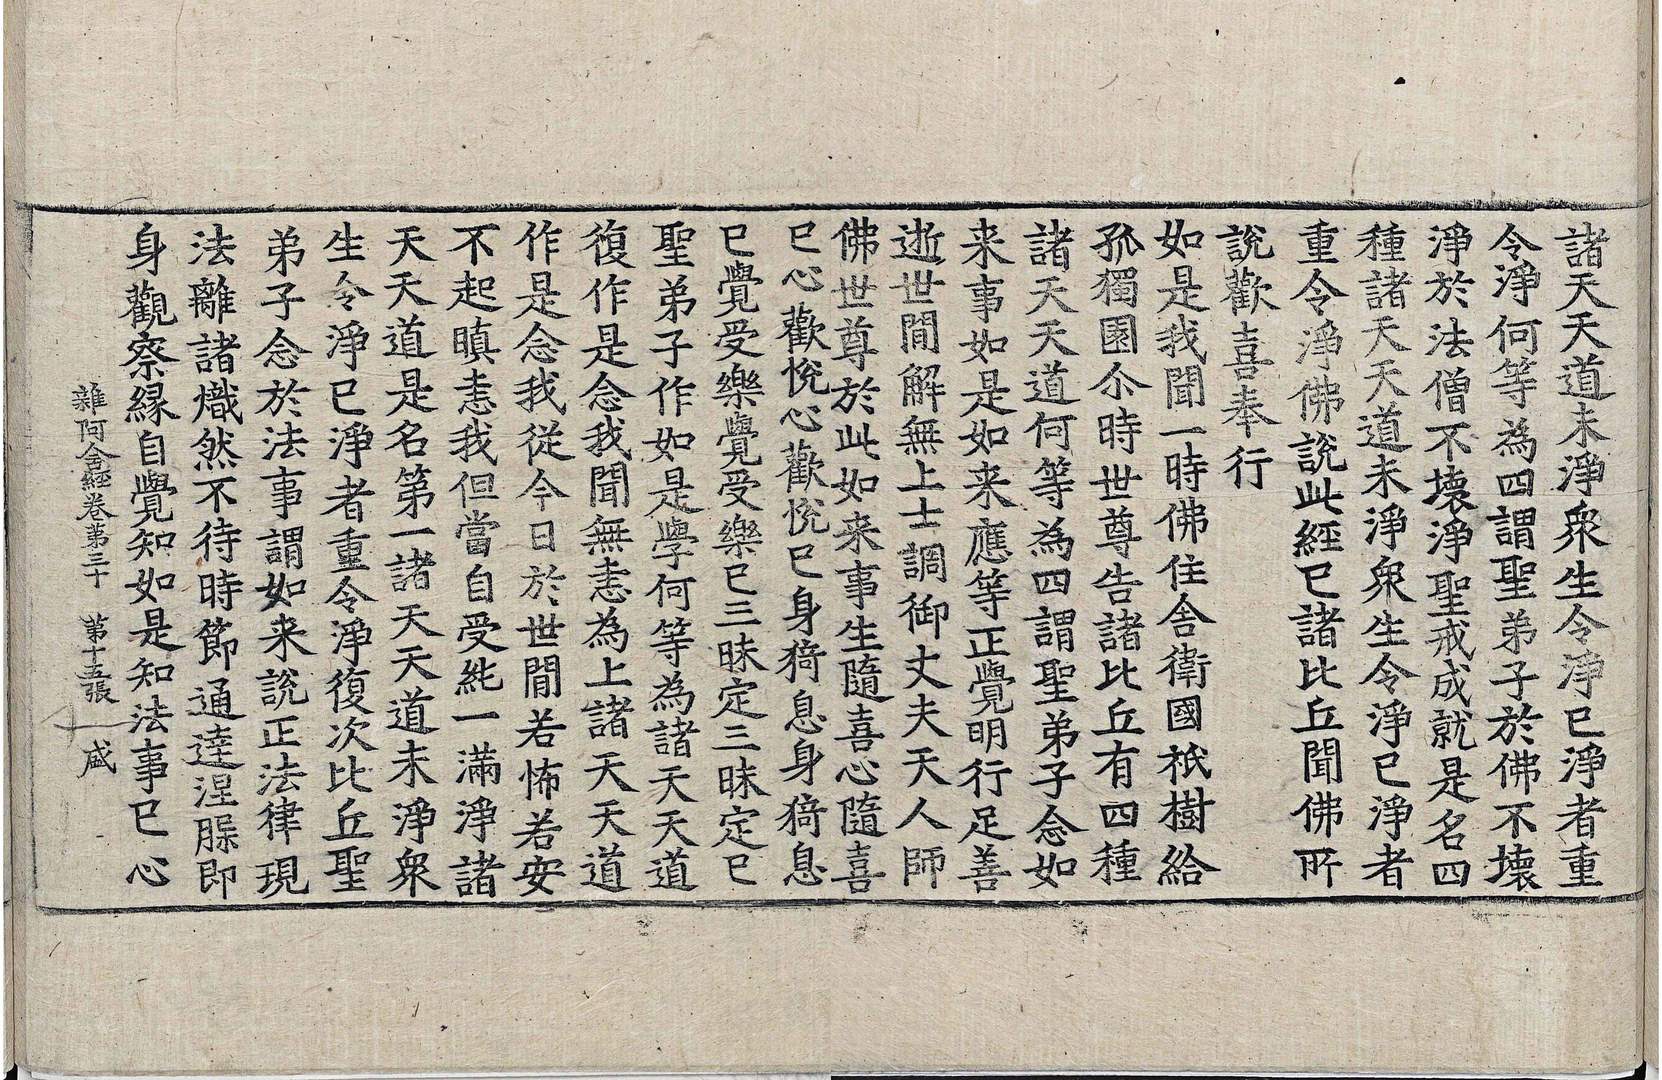 諸天天道未淨衆生令淨已淨者重
令淨何等為四謂聖弟子於佛不壞
淨於法僧不壞淨聖戒成就是名四
種諸天天道未淨衆生令淨已淨者
重令淨佛說此經已諸比丘聞佛所
說歡喜奉行
如是我聞一時佛住舍衛國祇樹給
孤獨園尒時世尊告諸比丘有四種
諸天天道何等為四謂聖弟子念如
来事如是如来應等正覺明行足善
逝世間解無上士調御丈夫天人師
佛世尊於此如来事生隨喜心隨喜
已心歡悅心歡悅已身猗息身猗息
已覺受樂覺受樂已三昧定三昧定已
聖弟子作如是學何等為諸天天道
復作是念我聞無恚為上諸天天道
作是念我從今日於世間若怖若安
不起瞋恚我但當自受純一滿淨諸
天天道是名第一諸天天道未淨衆
生令淨已淨者重令淨復次比丘聖
弟子念於法事謂如来說正法律現
法離諸熾然不待時節通達涅槃即
身觀察緣自覺知如是知法事已心
雜阿含經卷第三十 第十五張 咸